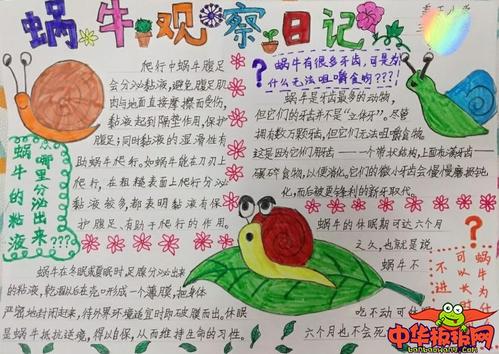 蜗牛观察日记
爬行中蜗牛腹足
会分泌粘液,避免腹足肌
肉与地面直接摩擦而受伤,
黏液起到隔垫作用,保护
腹足;同时黏液的湿滑性有
助蜗牛爬行。如蜗牛能在刀刃上
爬行,在粗糙表面上爬行分泌
黏液较多,都表明黏液有保
护腹足、有助于爬行的作用。
蜗牛的粘液
哪里分泌出来???
蜗牛在冬眠或夏眠时足腺分泌出来
的粘液,乾涸以后在壳口形成一个薄膜,把身体
严密地封闭起来,待外界环境适宜时却破膜而出。休眠
是蜗牛抵抗逆境,得以自保,从而维持生命的习性。
?蜗牛有很多牙齿,可是为
什么无法咀嚼食物???!
蜗牛是牙齿最多的动物,
但它们的牙齿并不是“立体牙”。尽管
拥有数万颗牙齿,但它们无法咀嚼食物。
这是因为它们用齿——一个带状结构,上面布满牙齿—
碾碎食物,以便消化。它们的微小牙齿会慢慢磨损钝
化,而后被更锋利的新牙取代。
蜗牛的休眠期可达六个月
之久,也就是说
蜗牛不
吃不动可
六个月也不会死
?蜗牛为什
可以长时
不进
中华板报网
banbaowang.com